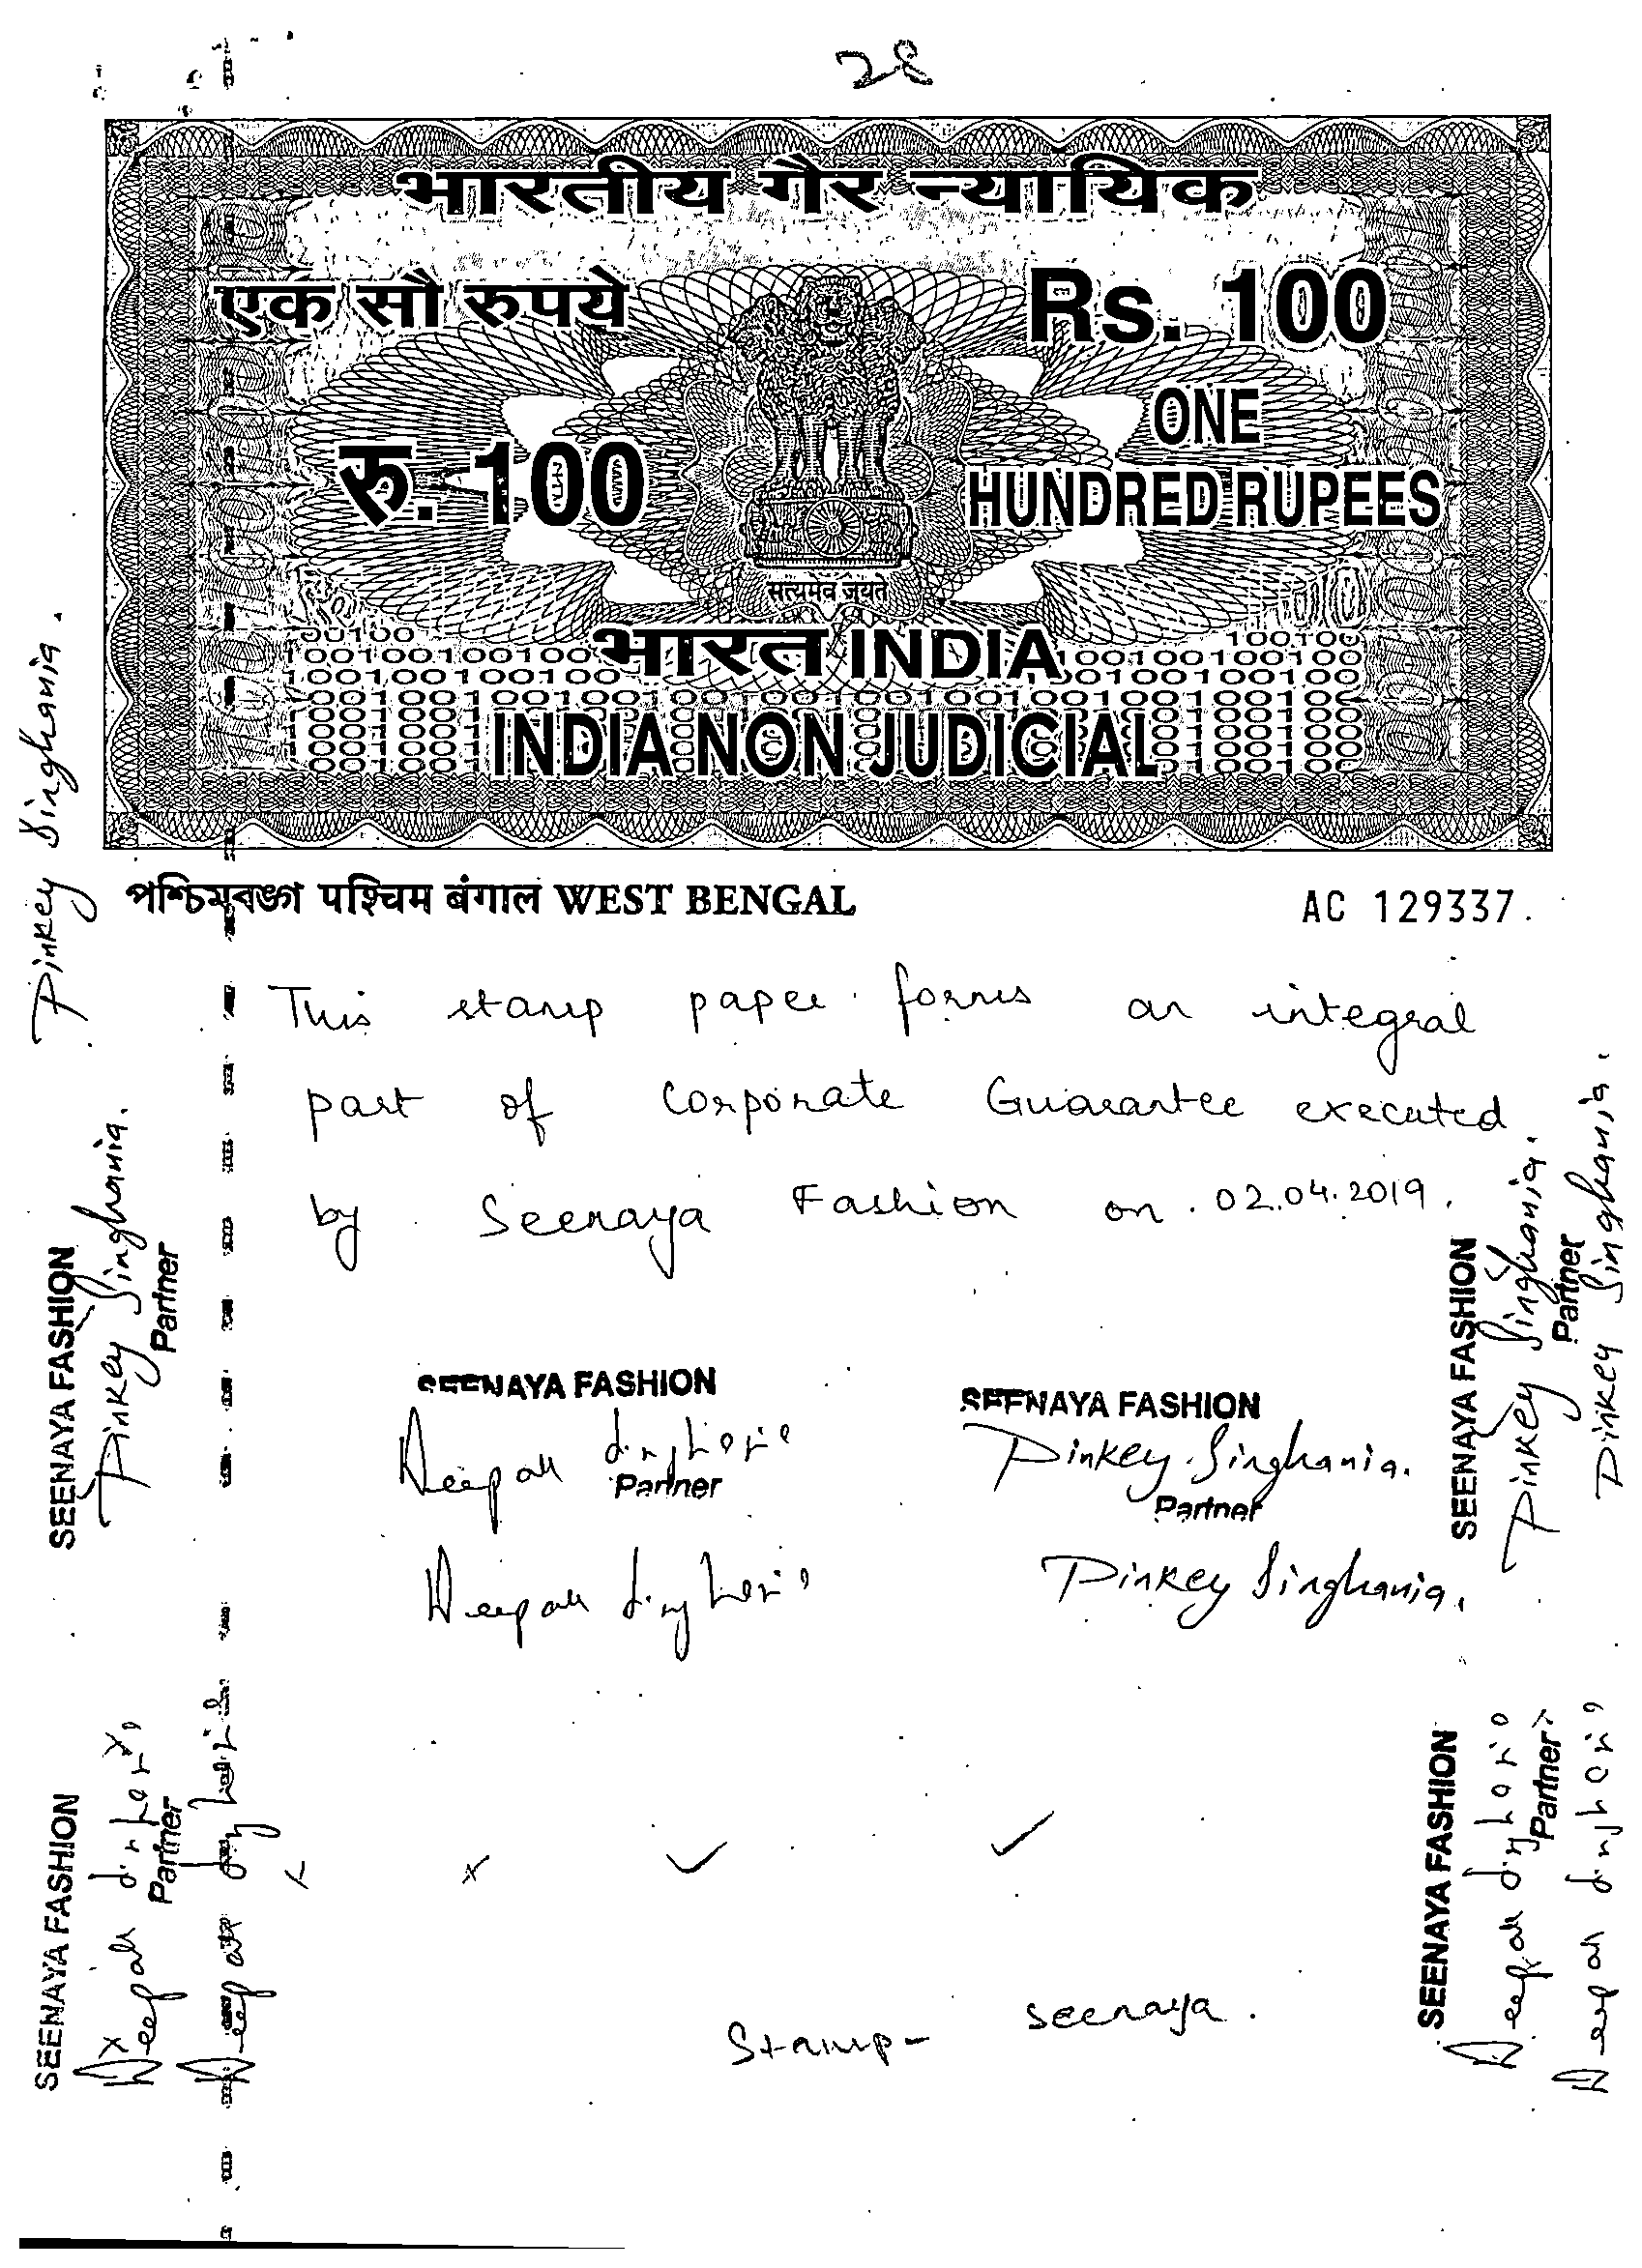 28
भारतीय गैर न्यायिक
एक सौ रुपये
Rs. 100
रु. 100
ONE
HUNDRED RUPEES
सत्यमेव जयते
भारत INDIA
INDIA NON JUDICIAL
পশ্চিমবঙ্গ पश्चिम बंगाल WEST BENGAL
AC 129337
This stamp paper forms an integral
part of Corporate Guarantee executed
by Seenaya Fashion on 02.04.2019.
Pinkey Singhania.
SEENAYA FASHION
Pinkey Singhania.
Partner
SEENAYA FASHION
Pinkey Singhania.
Partner
Pinkey Singhania.
SEENAYA FASHION
Deepak Singhania
Partner
Deepak Singhania
SEENAYA FASHION
Pinkey Singhania.
Partner
Pinkey Singhania.
SEENAYA FASHION
Deepak Singhania
Partner
Deepak Singhania
SEENAYA FASHION
Deepak Singhania
Partner
Deepak Singhania
Stamp - Seenaya.